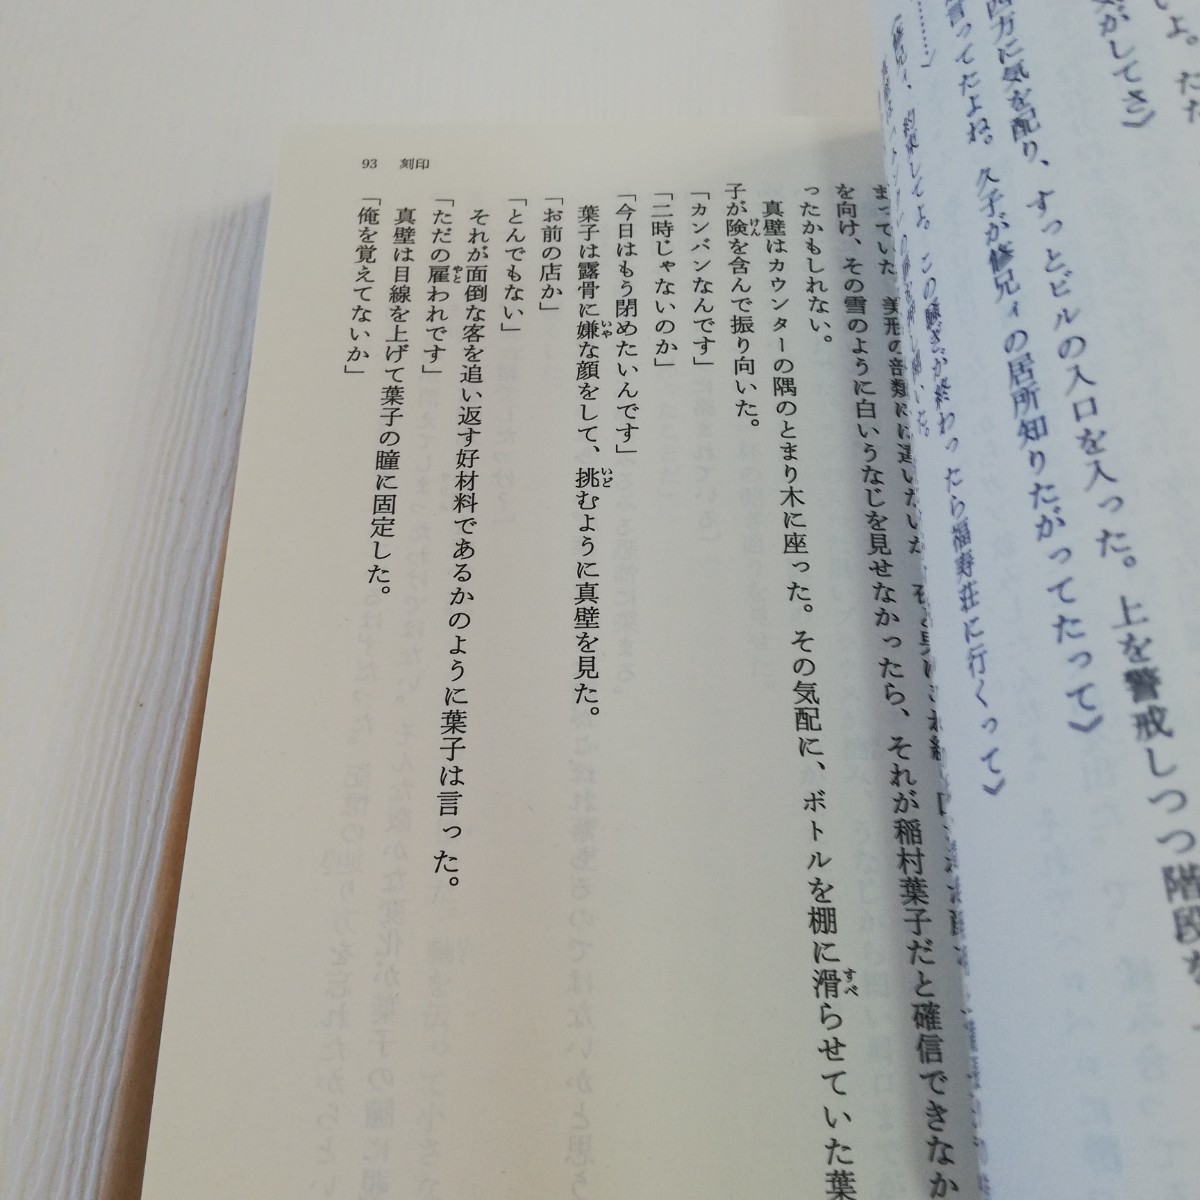 四方に気を配り、すっとビルの入口を入った。上を警戒しつつ階段な
言ってたよね。久子が修兄ィの居所知りたがってたって》
この騒ぎが終わったら福寿荘に行くって》
93 刻印
を向け、その雪のように白いうなじを見せなかったら、それが稲村葉子だと確信できなか
ったかもしれない。
真壁はカウンターの隅のとまり木に座った。その気配に、ボトルを棚に滑らせていた葉
子が険を含んで振り向いた。
「カンバンなんです」
「二時じゃないのか」
「今日はもう閉めたいんです」
葉子は露骨に嫌な顔をして、挑むように真壁を見た。
「お前の店か」
「とんでもない」
それが面倒な客を追い返す好材料であるかのように葉子は言った。
「ただの雇われです」
真壁は目線を上げて葉子の瞳に固定した。
「俺を覚えてないか」